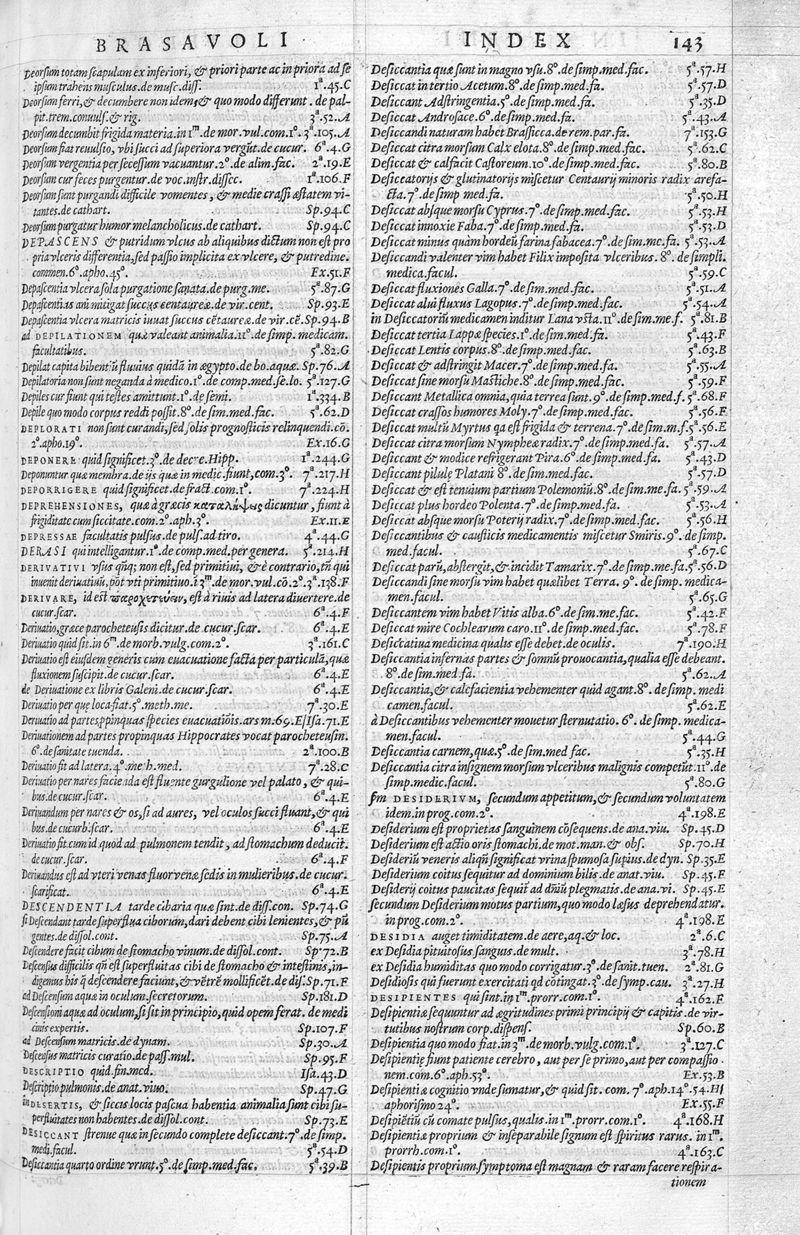 BRASAVOLI INDEX 143
Deorsum totam scapulam ex inferiori, & priori parte ac in priora ad se
ipsum trahens musculus. de musc. diss. 1ª.45.C
Deorsum ferri, & decumbere non idem, & quo modo differunt. de pal-
pit. trem. conuuls. & rig. 3ª.52.A
Deorsum decumbit frigida materia. in 1m. de mor. vul. com. 1º. 3ª.105.A
Deorsum fiat reuulsio, vbi succi ad superiora vergũt. de cucur. 6ª.4.G
Deorsum vergentia per secessum vacuantur. 2º. de alim. fac. 2ª.19.E
Deorsum cur feces purgentur. de voc. instr. dissec. 1ª.106.F
Deorsum sunt purgandi difficile vomentes, & medie crassi æstatem vi-
tantes. de cathart. Sp.94.C
Deorsum purgatur humor melancholicus. de cathart. Sp.94.C
DEPASCENS & putridum vlcus ab aliquibus dictum non est pro
pria vlceris differentia, sed passio implicita ex vlcere, & putredine.
commen. 6º. apho. 45º. Ex.51.F
Depascentia vlcera sola purgatione sanata. de purg. me. 5ª.87.G
Depascentias ani mitigat succus centaureæ. de vir. cent. Sp.93.E
Depascentia vlcera matricis iuuat succus cẽtaureæ. de vir. cẽ. Sp.94.B
ad DEPILATIONEM quæ valeant animalia. 11º. de simp. medicam.
facultatibus. 5ª.82.G
Depilat capita bibentiũ fluuius quidã in ægypto. de bo. aquæ. Sp.76.A
Depilatoria non sunt neganda à medico. 1º. de comp. med. se. lo. 5ª.127.G
Depiles cur fiunt qui testes amittunt. 1º. de semi. 1ª.334.B
Depile quo modo corpus reddi possit. 8º. de sim. med. fac. 5ª.62.D
DEPLORATI non sunt curandi, sed solis prognosticis relinquendi. cõ.
2º. apho. 19º. Ex.16.G
DEPONERE quid significet. 3º. de decre. Hipp. 1ª.244.G
Deponuntur quæ membra. de ijs quæ in medic. fiunt, com. 3º. 7ª.217.H
DEPORRIGERE quid significet. de fract. com. 1º. 7ª.224.H
DEPREHENSIONES, quæ à græcis καταλήψεις dicuntur, fiunt à
frigiditate cum siccitate. com. 2º. aph. 3º. Ex.11.E
DEPRESSAE facultatis pulsus. de puls. ad tiro. 4ª.44.G
DERASI qui intelligantur. 1º. de comp. med. per genera. 5ª.214.H
DERIVATIVI vsus qñq; non est, sed primitiui, & è contrario, tñ qui
inuenit deriuatiuũ, põt vti primitiuo. i 3m. de mor. vul. cõ. 2º. 3ª.138.F
DERIVARE, id est παροχετεύειν, est à riuis ad latera diuertere. de
cucur. scar. 6ª.4.F
Deriuatio, græce parocheteusis dicitur. de cucur. scar. 6ª.4.E
Deriuatio quid sit. in 6m. de morb. vulg. com. 2º. 3ª.161.C
Deriuatio est eiusdem generis cum euacuatione facta per particulã, quæ
fluxionem suscipit. de cucur. scar. 6ª.4.E
de Deriuatione ex libris Galeni. de cucur. scar. 6ª.4.E
Deriuatio per quę loca fiat. 5º. meth. me. 7ª.30.E
Deriuatio ad partes ppinquas species euacuatiõis. ars m. 69.E/Isa.71.E
Deriuationem ad partes propinquas Hippocrates vocat parocheteusin.
6º. de sanitate tuenda. 2ª.100.B
Deriuatio fit ad latera. 4º. me th. med. 7ª.28.C
Deriuatio per nares facie ida est fluente gurgulione vel palato, & qui-
bus. de cucur. scar. 6ª.4.E
Deriuandum per nares & os, si ad aures, vel oculos succi fluant, & qui
bus. de cucurb. scar. 6ª.4.E
Deriuatio fit. cum id quod ad pulmonem tendit, ad stomachum deducit.
de cucur. scar. 6ª.4.F
Deriuandus est ad vteri venas fluor venæ sedis in mulieribus. de cucur.
scarificat. 6ª.4.E
DESCENDENTIA tarde cibaria quæ sint. de diss. con. Sp.74.G
si Descendant tarde superflua ciborum, dari debent cibi lenientes, & pũ
gentes. de dissol. cont. Sp.75.A
Descendere facit cibum de stomacho vinum. de dissol. cont. Sp.72.B
Descensus difficilis qñ est superfluitas cibi de stomacho & intestinis, in-
digemus his q̃ descendere faciunt, & vẽtrẽ mollificẽt. de dis. Sp.71.F
ad Descensum aquæ in oculum. secretorum. Sp.181.D
Descensioni aquæ ad oculum, si sit in principio, quid opem ferat. de medi
cinis expertis. Sp.107.F
ad Descensum matricis. de dynam. Sp.30.A
Descensus matricis curatio. de pass. mul. Sp.95.F
DESCRIPTIO quid. fin. med. Isa.43.D
Descriptio pulmonis. de anat. viuo. Sp.47.G
in DESERTIS, & siccis locis pascua habentia animalia sunt cibi su-
perfluitates non habentes. de dissol. cont. Sp.73.E
DESICCANT strenue quæ in secundo complete desiccant. 7º. de simp.
medi. facul. 5ª.54.D
Desiccantia quarto ordine vrunt. 5º. de simp. med. fac. 5ª.39.B
Desiccantia quæ sunt in magno vsu. 8º. de simp. med. fac. 5ª.57.H
Desiccat in tertio Acetum. 8º. de simp. med. fa. 5ª.57.D
Desiccant Adstringentia. 5º. de simp. med. fa. 5ª.35.D
Desiccat Androsace. 6º. de simp. med. fa. 5ª.43.A
Desiccandi naturam habet Brassicca. de rem. par. fa. 7ª.153.G
Desiccat citra morsum Calx elota. 8º. de simp. med. fac. 5ª.62.C
Desiccat & calfacit Castoreum. 10º. de simp. med. fac. 5ª.80.B
Desiccatorijs & glutinatorijs miscetur Centaurij minoris radix arefa-
cta. 7º. de simp med. fa. 5ª.50.H
Desiccat absque morsu Cyprus. 7º. de simp. med. fac. 5ª.53.H
Desiccat innoxie Faba. 7º. de simp. med. fa. 5ª.53.D
Desiccat minus quàm hordeũ farina fabacea. 7º. de sim. me. fa. 5ª.53.A
Desiccandi valenter vim habet Filix imposita vlceribus. 8º. de simpli.
medica. facul. 5ª.59.C
Desiccat fluxiones Galla. 7º. de sim. med. fac. 5ª.51.A
Desiccat alui fluxus Lagopus. 7º. de simp. med. fac. 5ª.54.A
in Desiccatoriũ medicamen inditur Lana vsta. 11º. de sim. me. f. 5ª.81.B
Desiccat tertia Lappæ species. 1º. de sim. med. fa. 5ª.43.F
Desiccat Lentis corpus. 8º. de simp. med. fac. 5ª.63.B
Desiccat & adstringit Macer. 7º. de simp. med. fa. 5ª.55.A
Desiccat sine morsu Mastiche. 8º. de simp. med. fac. 5ª.59.F
Desiccant Metallica omnia, quia terrea sunt. 9º. de simp. med. f. 5ª.68.F
Desiccat crassos humores Moly. 7º. de simp. med. fac. 5ª.56.F
Desiccat multũ Myrtus qa est frigida & terrena. 7º. de sim. m. f. 5ª.56.E
Desiccat citra morsum Nympheæ radix. 7º. de simp. med. fa. 5ª.57.A
Desiccant & modice refrigerant Pira. 6º. de simp. med. fa. 5ª.43.D
Desiccant pilulę Platani 8º. de sim. med. fac. 5ª.57.D
Desiccat & est tenuium partium Polemoniũ. 8º. de sim. me. fa. 5ª.59.A
Desiccat plus hordeo Polenta. 7º. de simp. med. fa. 5ª.53.A
Desiccat absque morsu Poterij radix. 7º. de simp. med. fac. 5ª.56.H
Desiccantibus & causticis medicamentis miscetur Smiris. 9º. de simp.
med. facul. 5ª.67.C
Desiccat parũ, abstergit, & incidit Tamarix. 7º. de simp. me. fa. 5ª.56.D
Desiccandi sine morsu vim habet quælibet Terra. 9º. de simp. medica-
men. facul. 5ª.65.G
Desiccantem vim habet Vitis alba. 6º. de sim. me. fac. 5ª.42.F
Desiccat mire Cochlearum caro. 11º. de simp. med. fac. 5ª.78.F
Desiccatiua medicina qualis esse debet. de oculis. 7ª.190.H
Desiccantia infernas partes & somnũ prouocantia, qualia esse debeant.
8º. de sim. med. fa. 5ª.62.A
Desiccantia, & calefacientia vehementer quid agant. 8º. de simp. medi
camen. facul. 5ª.62.E
à Desiccantibus vehementer mouetur sternutatio. 6º. de simp. medica-
men. facul. 5ª.44.G
Desiccantia carnem, quæ. 5º. de sim. med fac. 5ª.35.H
Desiccantia citra insignem morsum vlceribus malignis competũt. 11º. de
simp. medic. facul. 5ª.80.G
sm DESIDERIVM, secundum appetitum, & secundum voluntatem
idem. in prog. com. 2º. 4ª.198.E
Desiderium est proprietas sanguinem cõsequens. de ana. viu. Sp.45.D
Desiderium est actio oris stomachi. de mot. man. & obs. Sp.70.H
Desideriũ veneris aliqñ significat vrina spumosa supius. de dyn. Sp.35.E
Desiderium coitus sequitur ad dominium bilis. de anat. viu. Sp.45.F
Desiderij coitus paucitas sequit ad dñiũ plegmatis. de ana. vi. Sp.45.E
secundum Desiderium motus partium, quo modo læsus deprehendatur.
in prog. com. 2º. 4ª.198.E
DESIDIA auget timiditatem. de aere, aq. & loc. 2ª.6.C
ex Desidia pituitosus sanguis. de mult. 3ª.78.H
ex Desidia humiditas quo modo corrigatur. 3º. de sanit. tuen. 2ª.81.G
Desidiosis qui fuerunt exercitati qd cõtingat. 3º. de symp. cau. 3ª.27.H
DESIPIENTES qui sint. in 1m. prorr. com. 1º. 4ª.162.F
Desipientia sequuntur ad ægritudines primi principij & capitis. de vir-
tutibus nostrum corp. dispens. Sp.60.B
Desipientia quo modo fiat. in 3m. de morb. vulg. com. 1º. 3ª.127.C
Desipientię fiunt patiente cerebro, aut per se primo, aut per compassio
nem. com. 6º. aph. 53º. Ex.53.B
Desipientiæ cognitio vnde sumatur, & quid sit. com. 7º. aph. 14º. 54.H/
aphorismo 24º. Ex.55.F
Desipiẽtiũ cũ comate pulsus, qualis. in 1m. prorr. com. 1º. 4ª.168.H
Desipientiæ proprium & inseparabile signum est spiritus rarus. in 1m.
prorrh. com. 1º. 4ª.163.C
Desipientis proprium symptoma est magnam & raram facere respira-
tionem